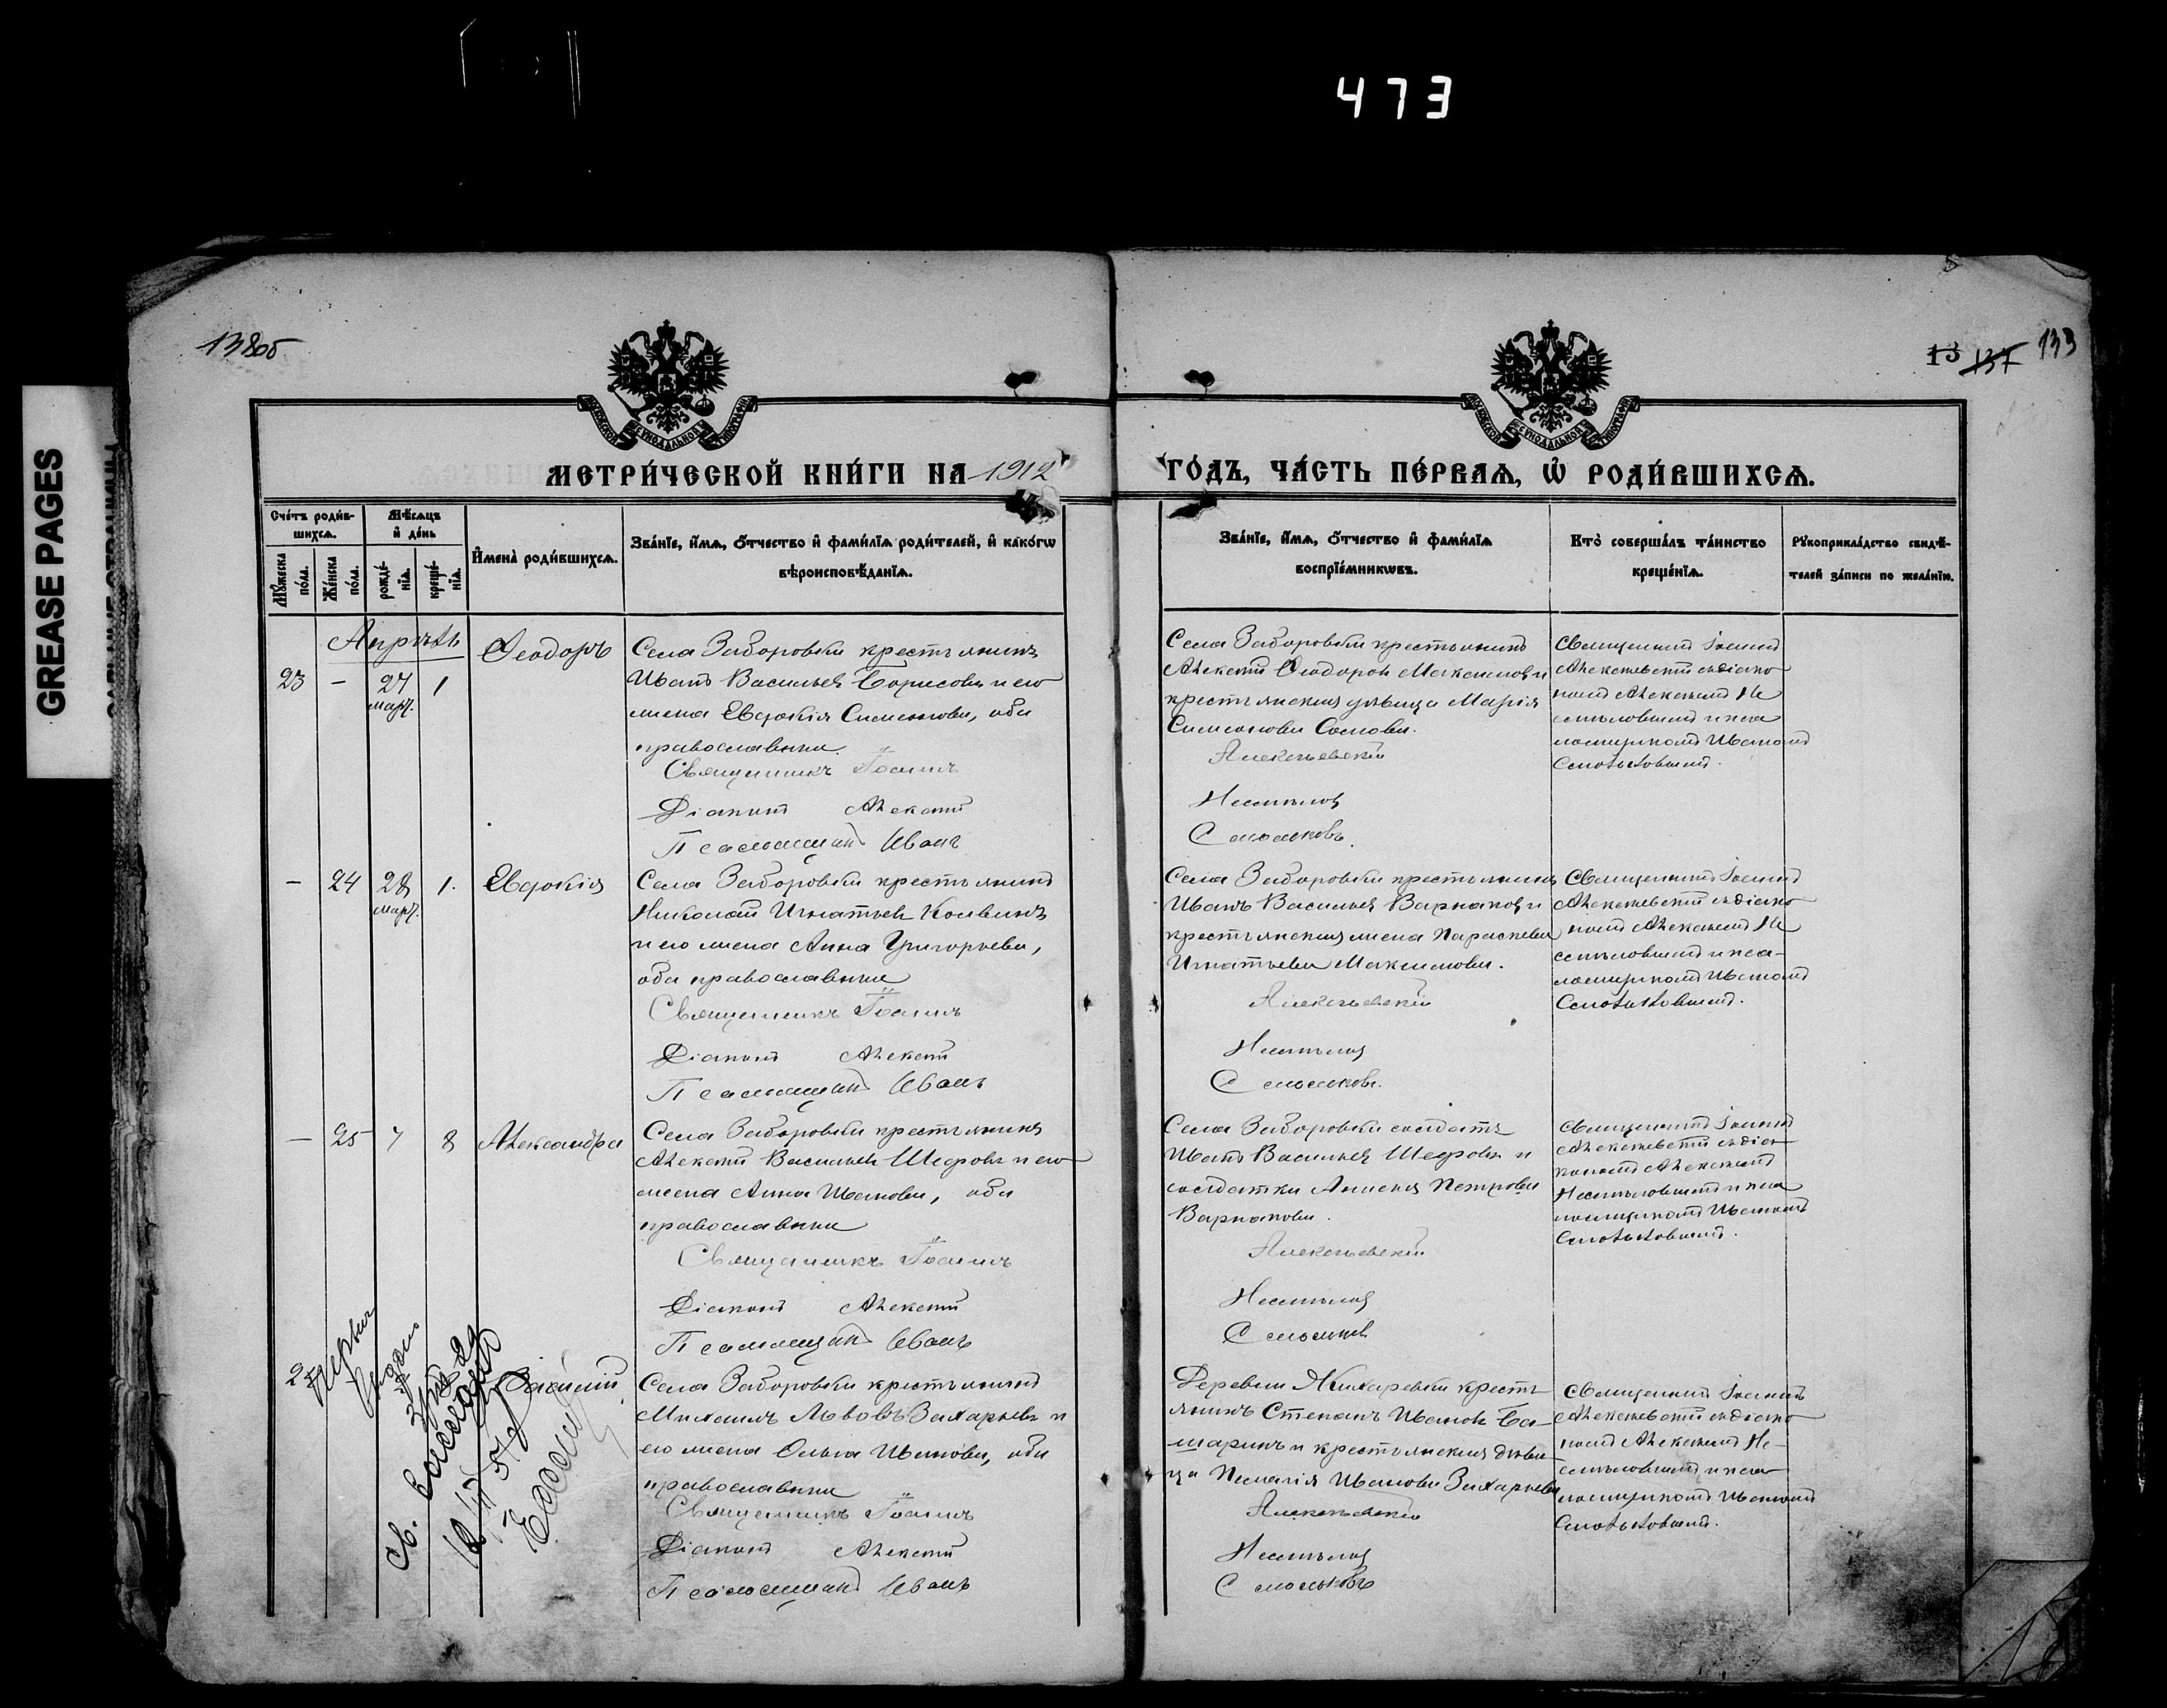 473
GREASE PAGES
13 137 133
МЕТРИ́ЧЕСКОЙ КНИ́ГИ НА 1912
ГО́ДЪ, ЧА́СТЬ ПЕ́РВАЯ, Ѡ҆ РОДИ́ВШИХСЯ.
Сче́тъ роди́в-
шихся.
Мѣ́сяцъ
и҆ де́нь
Мꙋ́жеска
по́ла.
Же́нска
по́ла.
рожде́-
нїя.
креще́-
нїя.
И҆мена̀ роди́вшихся.
Зва́нїе, и҆́мя, ѻ҆́тчество и҆ фами́лїя роди́телей, и҆ како́гѡ
вѣроисповѣ́данїя.
Зва́нїе, и҆́мя, ѻ҆́тчество и҆ фами́лїя
воспрїе́мникѡвъ.
Кто̀ соверша́лъ та́инство
креще́нїя.
Рꙋкоприкла́дство свидѣ́-
телей за́писи по жела́нїю.
Апрѣль
23 - 27 1
март.
Ѳеодоръ
Села Заборовки крестьянинъ
Иванъ Васильевъ Борисовъ и его
жена Евдокія Симеонова, оба
православные
Священникъ Іоаннъ
Діаконъ Алексѣй
Псаломщикъ Иванъ
Села Заборовки крестьянинъ
Алексѣй Ѳеодоровъ Максимовъ и
крестьянская дѣвица Марія
Симеонова Сомова.
Алексѣевскій
Несмѣловъ
Смольковъ
Священникъ Іоаннъ
Алексѣевскій съ діако-
номъ Алексѣемъ Не
смѣловымъ и пса
ломщикомъ Иваномъ
Смольковымъ.
- 24 28 1.
март.
Евдокія
Села Заборовки крестьянинъ
Николай Игнатьевъ Конвинъ
и его жена Анна Григорьева,
оба православные
Священникъ Іоаннъ
Діаконъ Алексѣй
Псаломщикъ Иванъ
Села Заборовки крестьянинъ
Иванъ Васильевъ Варнаковъ и
крестьянская жена Параскева
Игнатьева Максимова.
Алексѣевскій
Несмѣловъ
Смольковъ.
Священникъ Іоаннъ
Алексѣевскій съ діако
номъ Алексѣемъ Не
смѣловымъ и пса-
ломщикомъ Иваномъ
Смольковымъ.
- 25 7 8
Александра
Села Заборовки крестьянинъ
Алексѣй Васильевъ Шедровъ и его
жена Анна Иванова, оба
православные
Священникъ Іоаннъ
Діаконъ Алексѣй
Псаломщикъ Иванъ
Села Заборовки солдатъ
Иванъ Васильевъ Шедровъ и
солдатка Анисія Петрова
Варнакова.
Алексѣевскій
Несмѣловъ
Смольковъ
Священникъ Іоаннъ
Алексѣевскій съ діа
кономъ Алексѣемъ
Несмѣловымъ и пса
ломщикомъ Иваномъ
Смольковымъ.
Василій
Села Заборовки крестьянинъ
Михаилъ Львовъ Захарьевъ и
его жена Ольга Иванова, оба
православные
Священникъ Іоаннъ
Діаконъ Алексѣй
Псаломщикъ Иванъ
Деревни Жихаревки кресть
янинъ Степанъ Ивановъ Ба-
шаринъ и крестьянская дѣви
ца Пелагія Иванова Захарьева
Алексѣевскій
Несмѣловъ
Смольковъ
Священникъ Іоаннъ
Алексѣевскій съ діако
номъ Алексѣемъ Не-
смѣловымъ и пса
ломщикомъ Иваномъ
Смольковымъ.